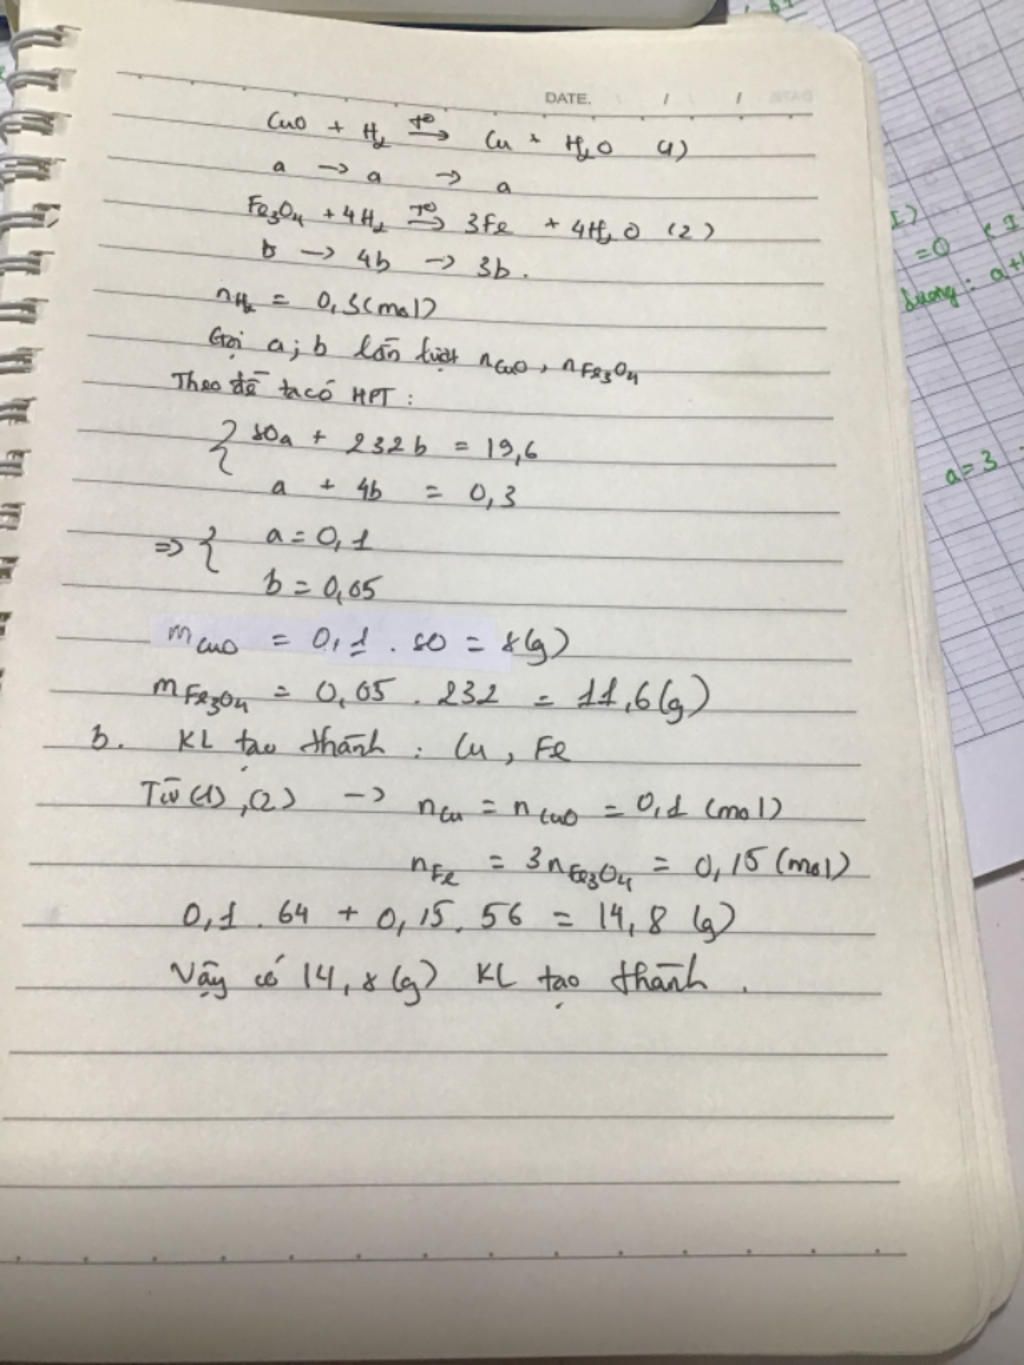 DATE. / /
CuO + H₂ →(t°) Cu + H₂O (1)
a → a → a
Fe₃O₄ + 4H₂ →(t°) 3Fe + 4H₂O (2)
b → 4b → 3b.
nH₂ = 0,3 (mol)
Gọi a; b lần lượt nCuO, nFe₃O₄
Theo đề ta có HPT:
{ 80a + 232b = 19,6
a + 4b = 0,3
=> { a = 0,1
b = 0,05
mCuO = 0,1 . 80 = 8(g)
mFe₃O₄ = 0,05 . 232 = 11,6(g)
b. KL tạo thành : Cu, Fe
Từ (1), (2) → nCu = nCuO = 0,1 (mol)
nFe = 3nFe₃O₄ = 0,15 (mol)
0,1 . 64 + 0,15 . 56 = 14,8 (g)
Vậy có 14,8(g) KL tạo thành.
=0
a=3